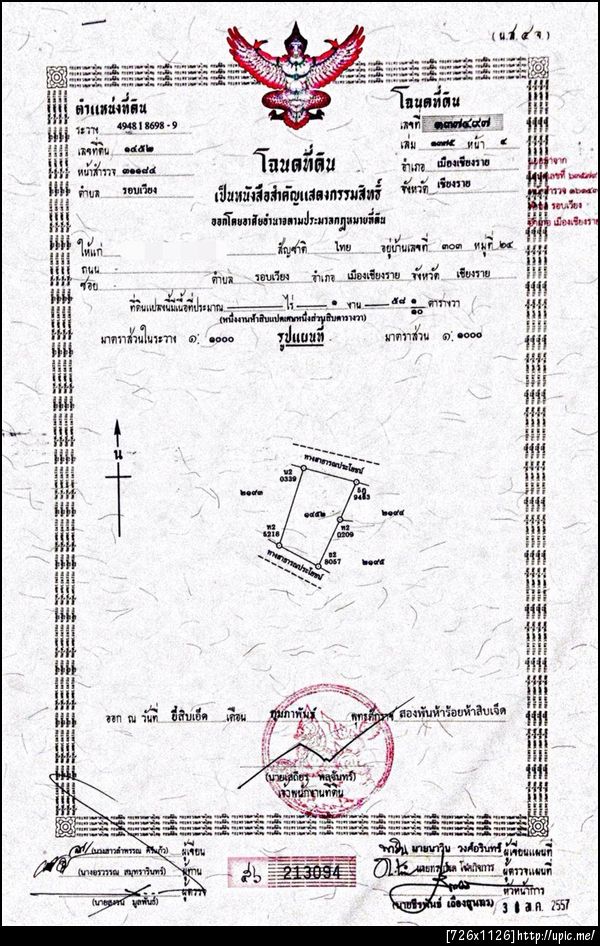 (น.ส.๔ จ.)
ตำแหน่งที่ดิน
ระวาง 4948 I 8698 - 9
เลขที่ดิน ๑๔๕๒
หน้าสำรวจ ๓๑๑๘๔
ตำบล รอบเวียง
โฉนดที่ดิน
เลขที่ ๑๓๗๔๙๗
เล่ม ๑๓๗๕ หน้า
อำเภอ เมืองเชียงราย
จังหวัด เชียงราย
รอบเวียง
เมืองเชียงราย
โฉนดที่ดิน
เป็นหนังสือสำคัญแสดงกรรมสิทธิ์
ออกโดยอาศัยอำนาจตามประมวลกฎหมายที่ดิน
ให้แก่ สัญชาติ ไทย อยู่บ้านเลขที่ ๓๐๓ หมู่ที่ ๒๔
ถนน
ซอย ตำบล รอบเวียง อำเภอ เมืองเชียงราย จังหวัด เชียงราย
ที่ดินแปลงนี้มีเนื้อที่ประมาณ ไร่ ๑ งาน ๕๘ ๑/๑๐ ตารางวา
(หนึ่งงานห้าสิบแปดเศษหนึ่งส่วนสิบตารางวา)
มาตราส่วนในระวาง ๑: ๑๐๐๐ รูปแผนที่ มาตราส่วน ๑: ๑๐๐๐
น
ทางสาธารณประโยชน์
น2
0339
9483
๒๑๙๓
๑๔๕๒
๒๑๙๔
ห2
0209
ห2
5218
8057
๒๑๙๕
ทางสาธารณประโยชน์
ออก ณ วันที่ ยี่สิบเอ็ด เดือน กุมภาพันธ์ พุทธศักราช สองพันห้าร้อยห้าสิบเจ็ด
เจ้าพนักงานที่ดิน
ผู้เขียน
ผู้ทาน
ผู้ตรวจ
213094
วงศ์อรินทร์ ผู้เขียนแผนที่
ผู้ตรวจแผนที่
หัวหน้าการ
2557
[726x1126]http://upic.me/